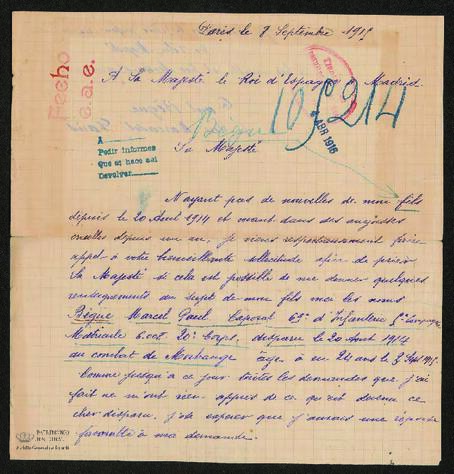 Paris le 7 Septembre 1915
A Sa Majesté le Roi d'Espagne Madrid.
Fecho
e.a.e.
Bègue 105214
6 ABR 1916
A
Pedir informes
Que se hace así
Devolver
Sa Majesté
N'ayant pas de nouvelles de mon fils
depuis le 20 Aout 1914 et vivant dans des angoisses
cruelles depuis un an, je viens respectueusement faire
appel à votre bienveillante sollicitude afin de prier
Sa Majesté si cela est possible de me donner quelques
renseignements au sujet de mon fils voici les noms
Bègue Marcel Paul Caporal 69e d'Infanterie
Matricule 6.001 20e Corps, disparu le 20 Aout 1914
au combat de Morhange âgé de 24 ans le
Comme jusqu'à ce jour toutes les demandes que j'ai
fait ne m'ont rien appris de ce qu'est devenu ce
cher disparu, j'ose espérer que j'aurais une réponse
favorable à ma demande.
PATRIMONIO
NACIONAL